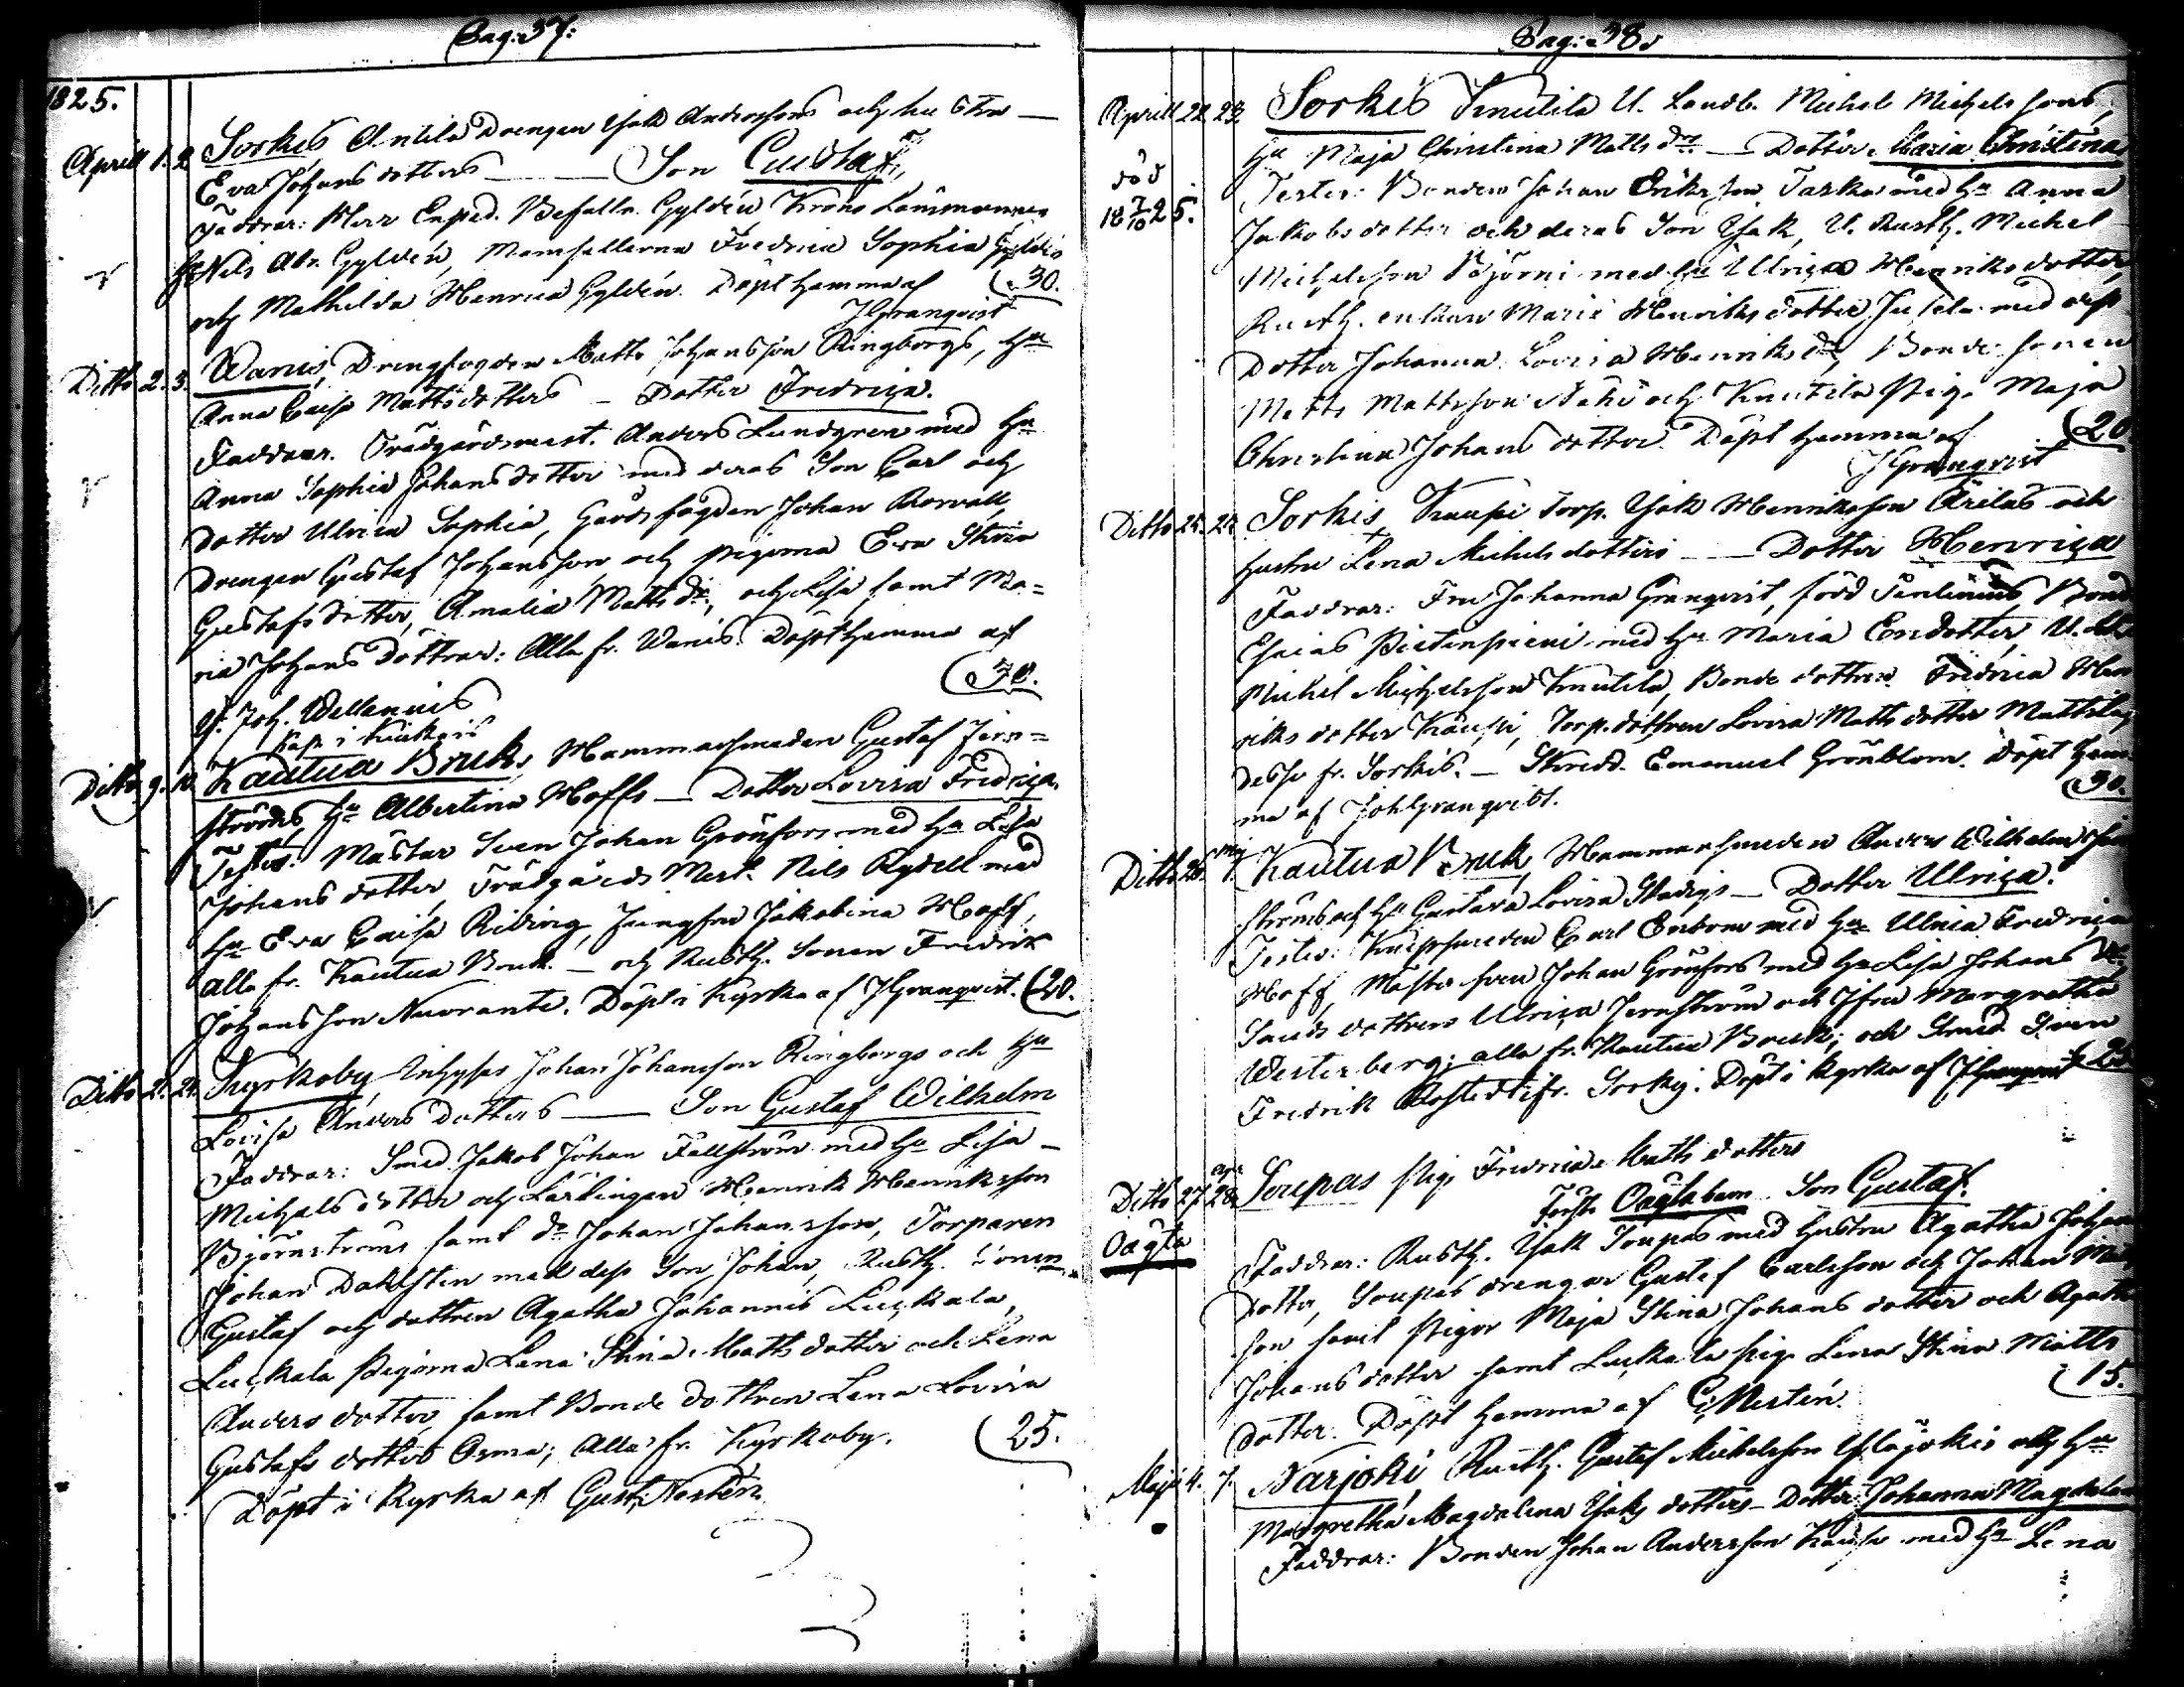 Pag: 37:
1825.
April 1. 2. Sorkis Antila Drengen Isak Anderssons och hustru
Eva Johans dotters — Son Gustaf,
Faddrar: Herr Exped. Befalln. Gyldén Krono Länsmannen
Hr Nils Abr. Gyldén, Mamsellerna Fredrica Sophia Gyldén
och Mathilda Henrica Gyldén. Döpt hemma af (30.
JGranqvist
Ditto 2. 3. Wanis, Drengfogden Matts Johansson Ringborgs, hu
Anna Caisa Mattsdotters — Dotter Fredrica.
Faddrar. Trädgårdsmest. Anders Lundgren med hu
Anna Sophia Johansdotter med deras Son Carl och
dotter Ulrica Sophia, Gårdsfogden Johan Borvall,
Drengen Gustaf Johansson och pigorna Eva Stina
Gustafs dotter, Amalia Matts dr, och Lisa samt Ma=
ria Johans döttrar: Alla fr. Wanis. Döpt hemma af
Joh. Wellenius (30.
Kap. i Kiukais
Ditto 9. 10. Kautua Bruk, Hammarsmeden Gustaf Jern=
ströms, hu Albertina Hoffs — Dotter Lovisa Fredrica.
Testes: Mästar Sven Johan Grönfors med hu Lisa
Johans dotter, Trädgårds Mest. Nils Rydell med
hu Eva Caisa Riding, Jungfru Jakobina Hoff,
alla fr. Kautua Bruk. — och Rusth. Sonen Fredrik
Johansson Nuoranta. Döpt i Kyrka af JGranqvist. (20.
Ditto 21. 24. Kyrkoby Inhyses Johan Johansson Ringborgs och hu
Lovisa Anders dotters — Son Gustaf Wilhelm
Faddrar: Smed Jakob Johan Fallström med hu Lisa
Michels dotter och Lärlingen Henrik Henriksson
Björnströms samt do Johan Johansson, Torparen
Johan Dahlsten med dess Son Johan, Rusth. Sonen
Gustaf och dottren Agatha Johannis Luckala,
Luckala Pigorna Lena Stina Matts dotter och Lena
Anders dotter, samt Bonde dottren Lena Lovisa
Gustafs dotter Orma; Alla fr. Kyrkoby. (25.
Döpt i Kyrka af Gust. Nestén
Pag: 38.
April 22. 23. Sorkis Knutila U. Landb. Michel Michelssons,
hu Maja Christina Matts dr. — Dotter Maria Christina
död
18 7/10 25.
Testes: Bonden Johan Eriksson Taska med hu Anna
Jakobs dotter och deras Son Isak, U. Rusth. Michel
Michelsson Björni med hu Ulrica Henriks dotter
Rusth. enkan Maria Henriks dotter Jusela med dess
Dotter Johanna Lovisa Henriks dr, Bonde sonen
Matts Mattsson och Knutila Pig. Maja
Christina Johans dotter. Döpt hemma af (20
JGranqvist
Ditto 22. 24. Sorkis, Kaupi Torp. Isak Henriksson Ärilas och
hustru Lena Michelsdotters — Dotter Henrica
Faddrar: Fru Johanna Granqvist, född Bond
Esaias med hu Maria dotter, U.
Michel Michelsson Knutila, Bonde dottren Fredrica Hen
riks dotter Kaupi, Torp. dottren Lovisa Matts dotter Mattila,
desse fr. Sorkis. — Skredd. Emanuel Grönblom. Döpt hem
ma af JohGranqvist. (30.
Ditto 28. Maj 1. Kautua Bruk, Hammarsmeden Anders Wilhelm
ströms och hu Gustava Lovisa — Dotter Ulrica.
Testes: Knipsmeden Carl Enbom med hu Ulrica Fredrica
Hoff, Mästar Sven Johan Grönfors med hu Lisa Johans dr
Smeds dottren Ulrica Jernström och Jfru Margretha
Westerberg; alla fr. Kautua Bruk; och Smed Sven
Fredrik Rostedt fr. Sorkis. Döpt i Kyrka af JGranqvist (20
Ditto 27. apr. 28. Soupas Pig. Fredrica Matts dotters
Oägta
Första Oägta barn Son Gustaf.
Faddrar: Rusth. Isak Soupas med hustru Agatha Johans
dotter, Soupas drengar Gustaf Carlsson och Johan
son samt Pigor Maja Stina Johans dotter och Agatha
Johans dotter samt Luckala pig. Lena Stina Matts
dotter. Döpt hemma af G. Nestén. (15.
Maji 4. 7. Narjoki, Rusth. Gustaf Michelsson Yläjokis och hu
Margretha Magdalena Isaks dotters — Dotter Johanna Magdalena
Faddrar: Bonden Johan Andersson med hu Lena